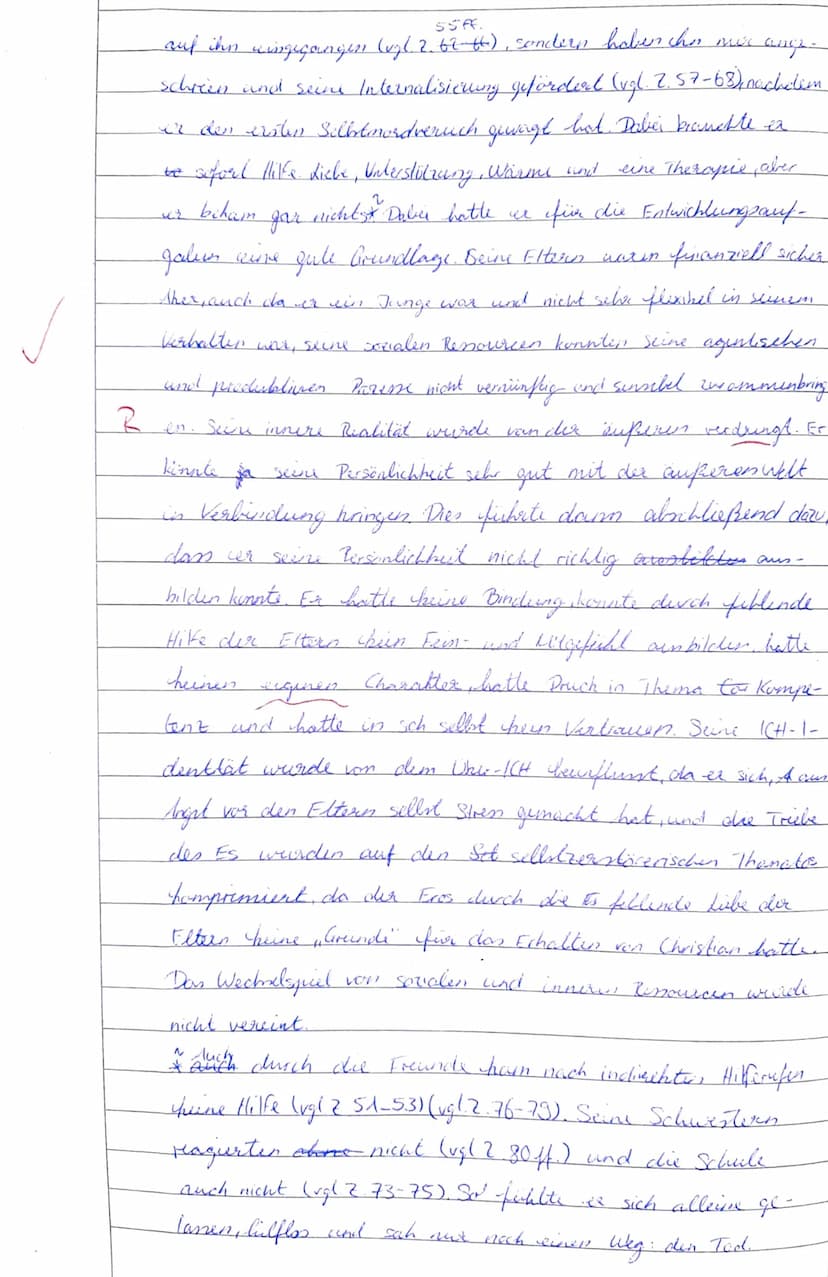 55ff.
auf ihn eingegangen (vgl. Z. 62-66), sondern haben ihn nur ange-
schrien und seine Internalisierung gefördert (vgl. Z. 57-68), nachdem
er den ersten Selbstmordversuch gewagt hat. Dabei brauchte er
sofort Hilfe. Liebe, Unterstützung, Wärme und eine Therapie, aber
er bekam gar nichts *2 Dabei hatte er für die Entwicklungsauf-
gaben eine gute Grundlage. Seine Eltern waren finanziell sicher
Aber, auch da er ein Junge war und nicht sehr flexibel in seinem
Verhalten war, seine sozialen Ressourcen konnten seine agentischen
und produktiven Prozesse nicht vernünftig und sensibel zusammenbring
R en. Seine innere Realität wurde von der äußeren verdrungt. Er
könnte seine Persönlichkeit sehr gut mit der außeren Welt
in Verbindung bringen. Dies führte dann abschließend dazu,
dass er seine Persönlichkeit nicht richtig ausbilden aus-
bilden konnte. Er hatte keine Bindung, konnte durch fehlende
Hilfe der Eltern kein Fein- und Mitgefühl ausbilden, hatte
keinen eigenen Charakter, hatte Druck in Thema Kompe-
tenz und hatte in sich selbst kein Vertrauen. Seine ICH-I-
dentität wurde von dem Über-ICH beeinflusst, da er sich, aus
Angst vor den Eltern selbst Stress gemacht hat, und die Triebe
des Es wurden auf den selbstzerstörerischen Thanatos
komprimiert, da der Eros durch die fehlende Liebe der
Eltern keine „Gründe" für das Erhalten von Christian hatte.
Das Wechselspiel von sozialen und inneren Ressourcen wurde
nicht vereint.
*2 auch durch die Freunde kam nach indirekten Hilferufen
keine Hilfe (vgl Z 51-53) (vgl. Z. 76-79). Seine Schwestern
reagierten ohne nicht (vgl Z. 80ff.) und die Schule
auch nicht (vgl Z 73-75). So fühlte er sich alleine ge-
lassen, hilflos und sah nur noch einen Weg: den Tod.